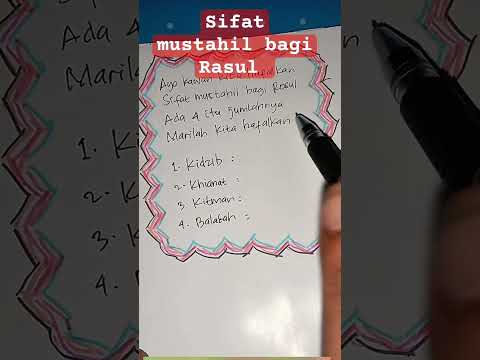 Sifat
mustahil bagi
Rasul
Ayo kawan kita hafalkan
Sifat mustahil bagi Rosul
Ada 4 itu jumlahnya
Marilah kita hafalkan
1. Kidzib :
2. Khianat :
3. Kitman :
4. Balabah :